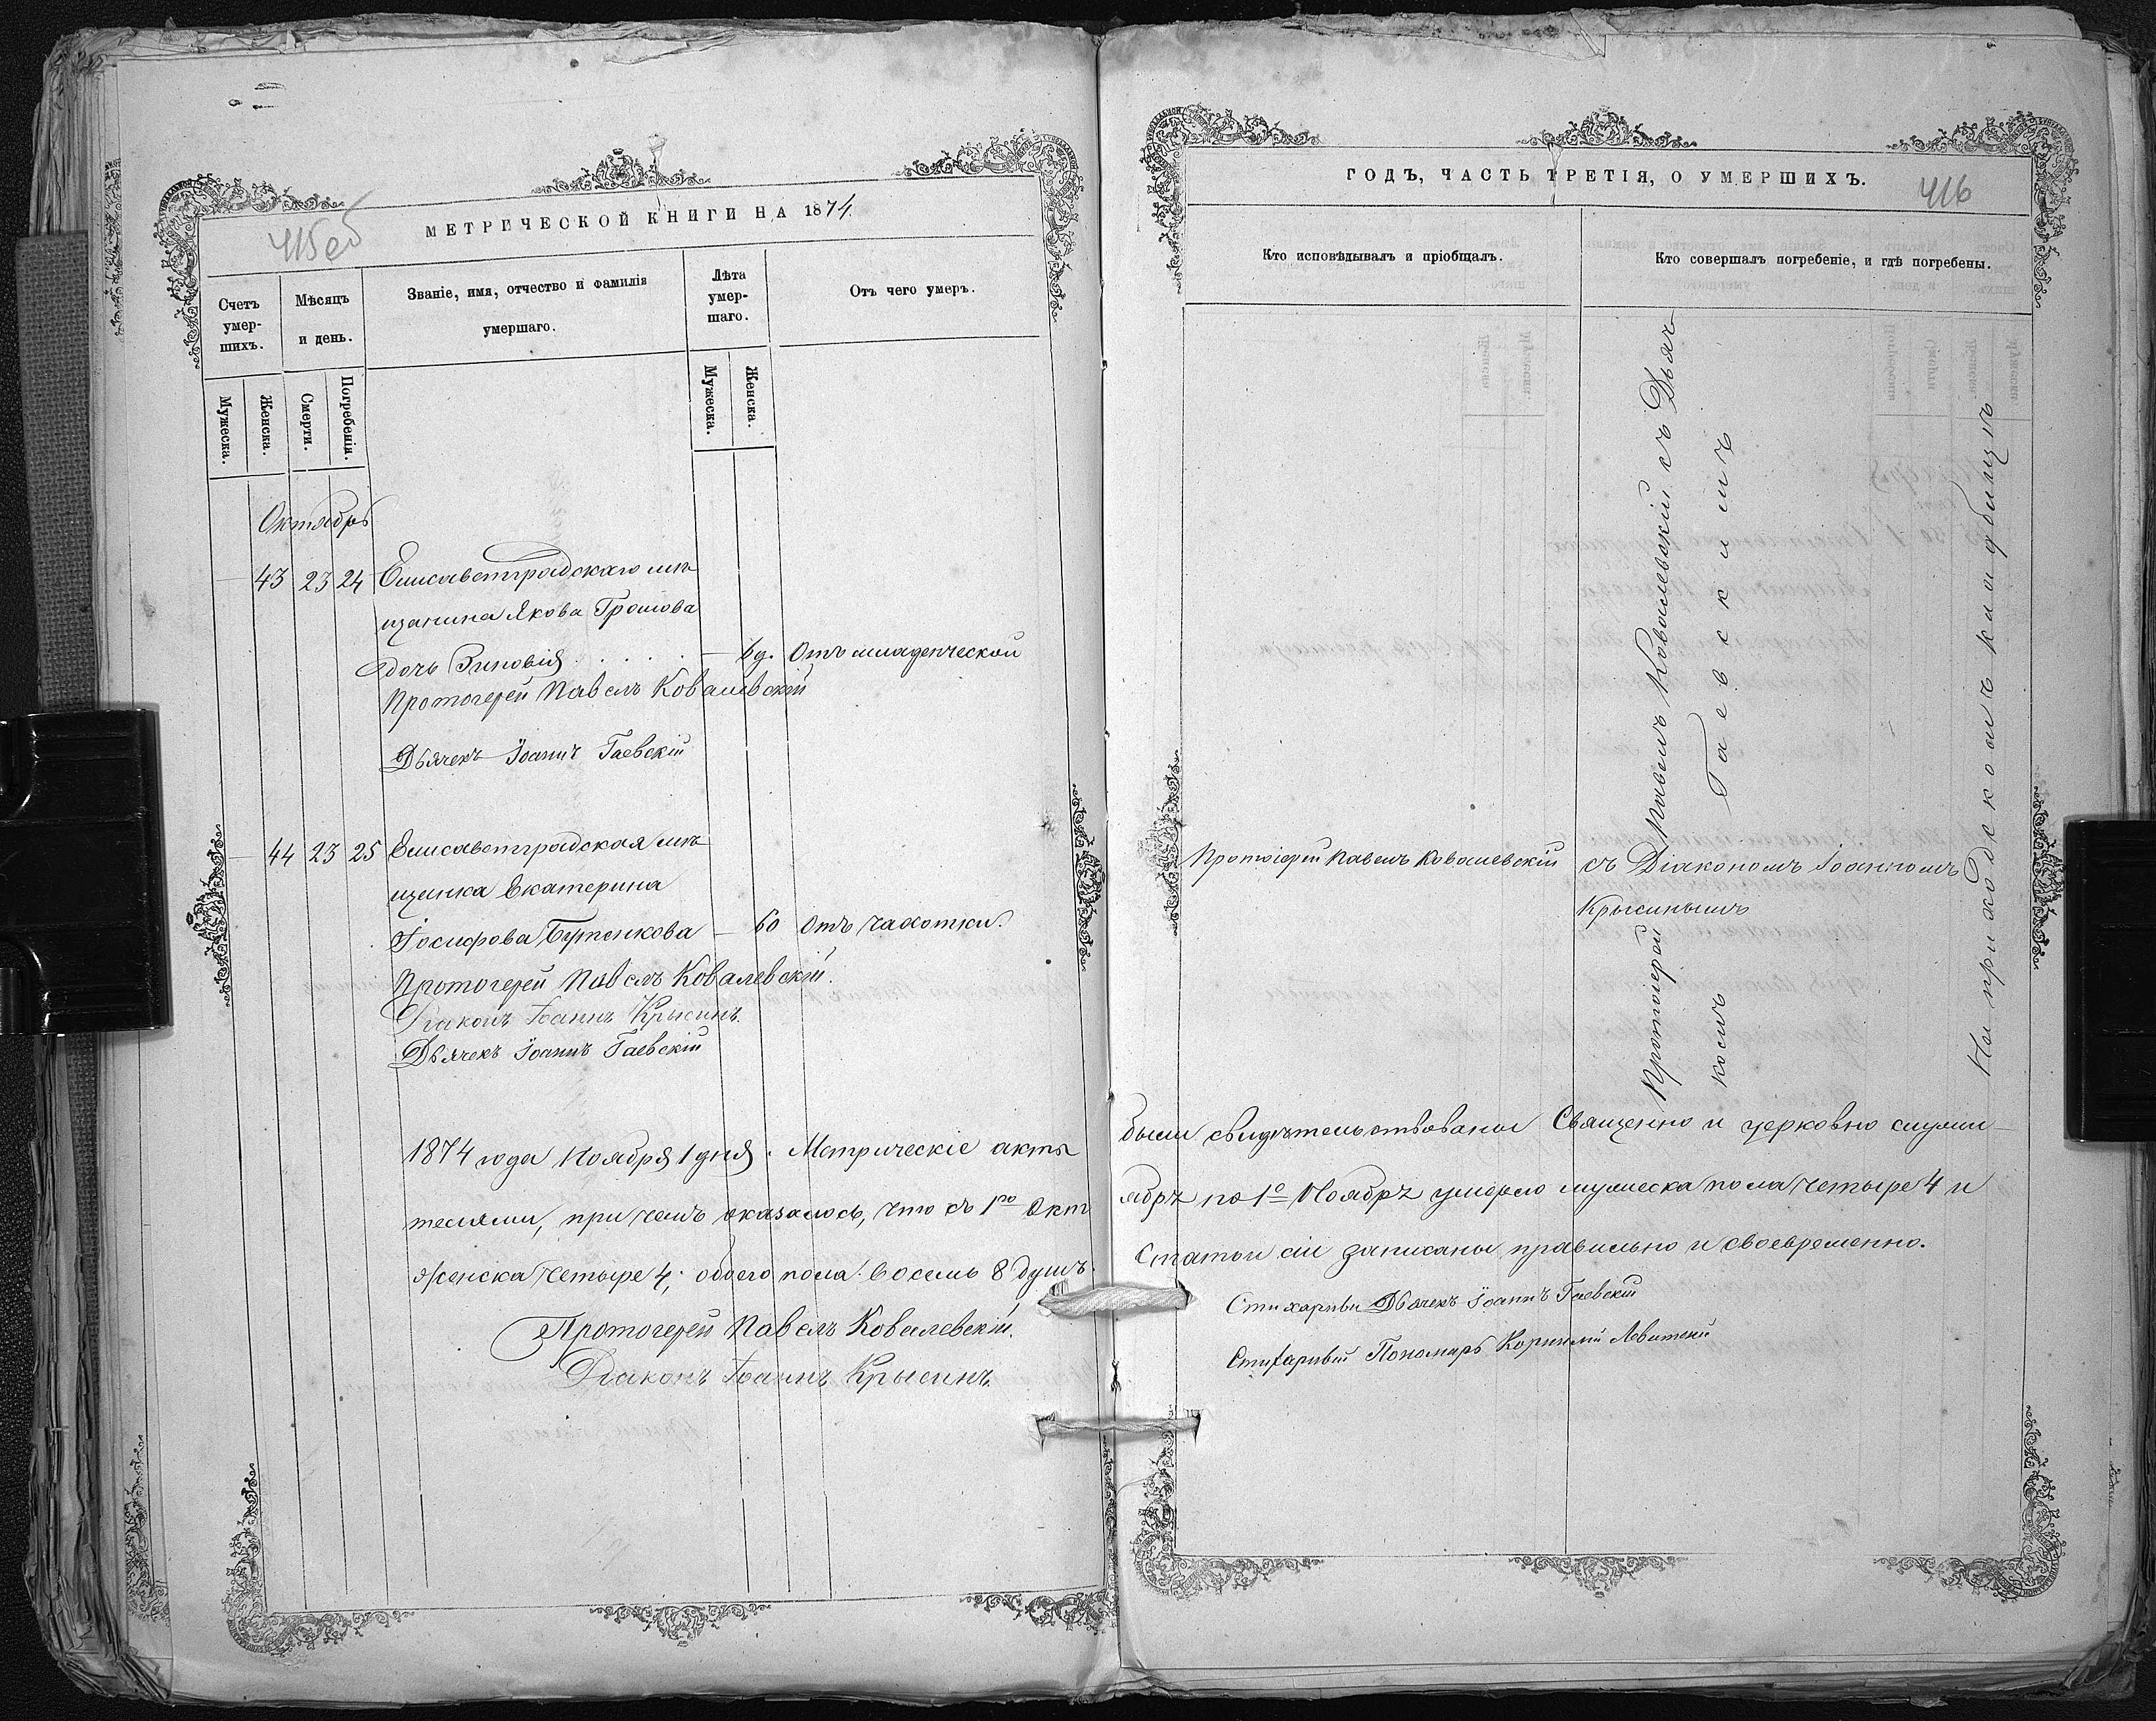 415об
МЕТРИЧЕСКОЙ КНИГИ НА 1874.
Счетъ умер-
шихъ.
Мѣсяцъ
и день.
Званіе, имя, отчество и фамилія
умершаго.
Лѣта
умер-
шаго.
Отъ чего умеръ.
Мужеска.
Женска.
Смерти.
Погребенія.
Мужеска.
Женска.
Октябрь
43 23 24 Елисаветградскаго мѣ
щанина Якова Громова
дочь Зиновія . . . . . — 6 д. Отъ младенческой
Протоіерей Павелъ Ковалевскій
Дьячекъ Іоаннъ Гаевскій
— 44 23 25 Елисаветградская мѣ
щанка Екатерина
Іосифова Бутенкова — 60 Отъ чахотки.
Протоіерей Павелъ Ковалевскій.
Діаконъ Іоаннъ Крысинъ.
Дьячекъ Іоаннъ Гаевскій
1874 года Ноября 1 дня. Метрическіе акты
телями, при чемъ оказалось, что съ 1го Окт
Женска четыре 4; обоего пола восемь 8 душъ.
Протоіерей Павелъ Ковалевскій.
Діаконъ Іоаннъ Крысинъ.
ГОДЪ, ЧАСТЬ ТРЕТІЯ, О УМЕРШИХЪ.
416
Кто исповѣдывалъ и пріобщалъ.
Кто совершалъ погребеніе, и гдѣ погребены.
Протоіерей Павелъ Ковалевскій съ Дьяч
комъ Гаевскимъ
На приходскомъ кладбищѣ
Протоіерей Павелъ Ковалевскій
съ Діакономъ Іоанномъ
Крысинымъ
были свидѣтельствованы Священно и церковно служи
ябрѣ по 1е Ноябрѣ умерло мужеска пола четыре 4 и
Статьи сіи записаны правильно и своевременно.
Дьячекъ Іоаннъ Гаевскій
Пономарь Корнилій Левитскій